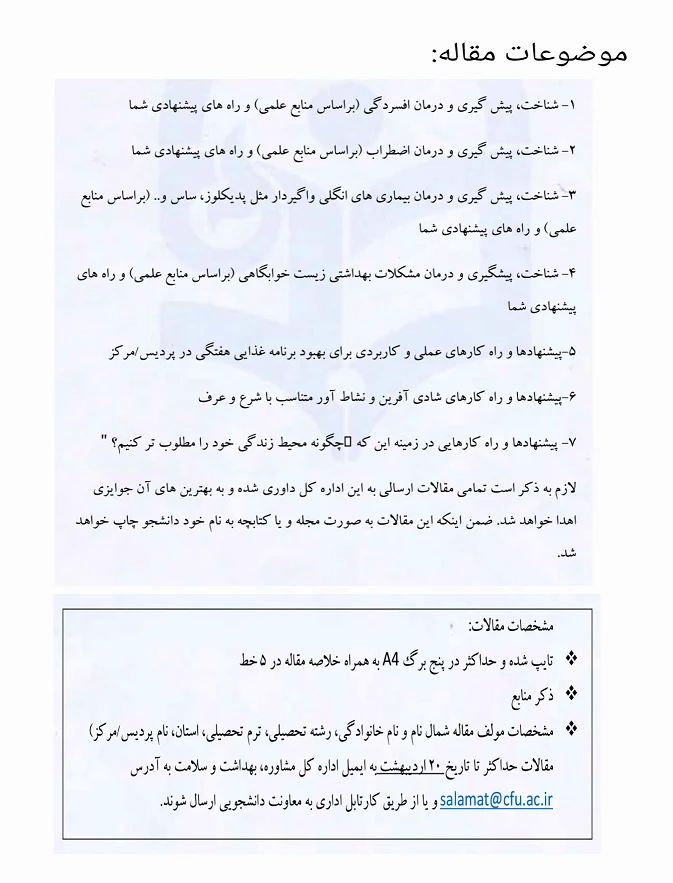 موضوعات مقاله:
۱- شناخت، پیش گیری و درمان افسردگی (براساس منابع علمی) و راه های پیشنهادی شما
۲- شناخت، پیش گیری و درمان اضطراب (براساس منابع علمی) و راه های پیشنهادی شما
۳- شناخت، پیش گیری و درمان بیماری های انگلی واگیردار مثل پدیکلوز، ساس و.. (براساس منابع
علمی) و راه های پیشنهادی شما
۴- شناخت، پیشگیری و درمان مشکلات بهداشتی زیست خوابگاهی (براساس منابع علمی) و راه های
پیشنهادی شما
۵-پیشنهادها و راه کارهای عملی و کاربردی برای بهبود برنامه غذایی هفتگی در پردیس/مرکز
۶-پیشنهادها و راه کارهای شادی آفرین و نشاط آور متناسب با شرع و عرف
۷- پیشنهادها و راه کارهایی در زمینه این که چگونه محیط زندگی خود را مطلوب تر کنیم؟ "
لازم به ذکر است تمامی مقالات ارسالی به این اداره کل داوری شده و به بهترین های آن جوایزی
اهدا خواهد شد. ضمن اینکه این مقالات به صورت مجله و یا کتابچه به نام خود دانشجو چاپ خواهد
شد.
مشخصات مقالات:
❖ تایپ شده و حداکثر در پنج برگ A4 به همراه خلاصه مقاله در ۵ خط
❖ ذکر منابع
❖ مشخصات مولف مقاله شمال نام و نام خانوادگی، رشته تحصیلی، ترم تحصیلی، استان، نام پردیس/مرکز)
مقالات حداکثر تا تاریخ ۲۰ اردیبهشت به ایمیل اداره کل مشاوره، بهداشت و سلامت به آدرس
salamat@cfu.ac.ir و یا از طریق کارتابل اداری به معاونت دانشجویی ارسال شوند.